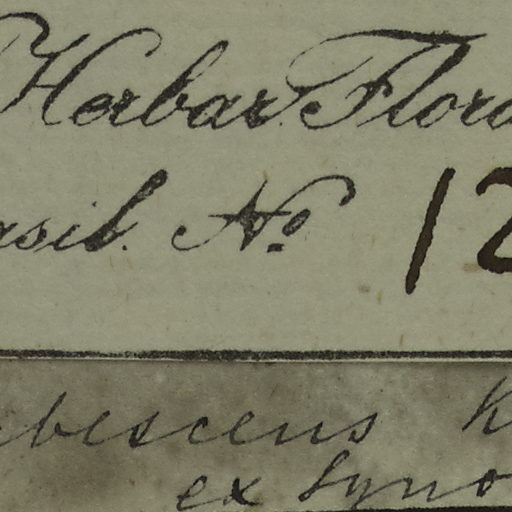 Herbar. Flora
asil. No. 12
bescens K
ex Syno